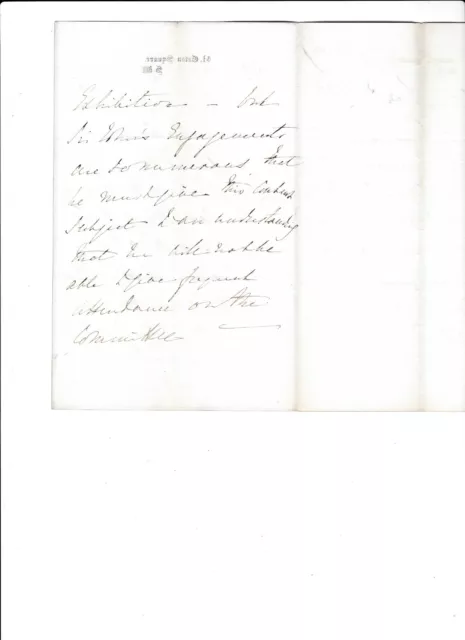 Eaton Square
S.W.
Exhibition – but
Sir John's Engagements
are so numerous that
he must give this Consent
subject to an understanding
that he will not be
able to give frequent
attendance on the
Committee